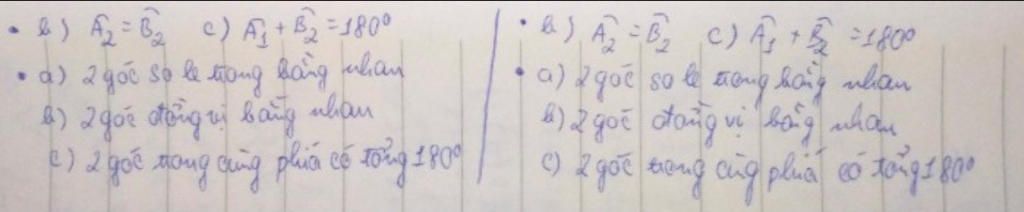 • b) Â₂ = B̂₂ c) Â₁ + B̂₂ = 180⁰
• a) 2 góc so le trong bằng nhau
b) 2 góc đồng vị bằng nhau
c) 2 góc trong cùng phía có tổng 180⁰
• b) Â₂ = B̂₂ c) Â₁ + B̂₂ = 180⁰
• a) 2 góc so le trong bằng nhau
b) 2 góc đồng vị bằng nhau
c) 2 góc trong cùng phía có tổng 180⁰